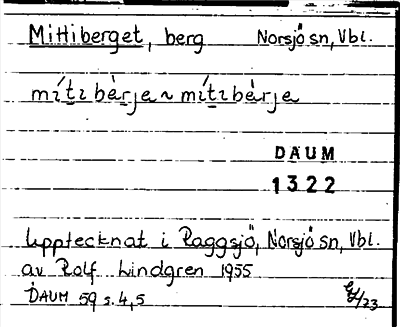 Mittiberget, berg Norsjö sn, Vbl.
mítı bèrje ~ mítıbèrje
DAUM
1322
Upptecknat i Raggsjö, Norsjö sn, Vbl.
av Rolf Lindgren 1955
DAUM 59 s. 4, 5